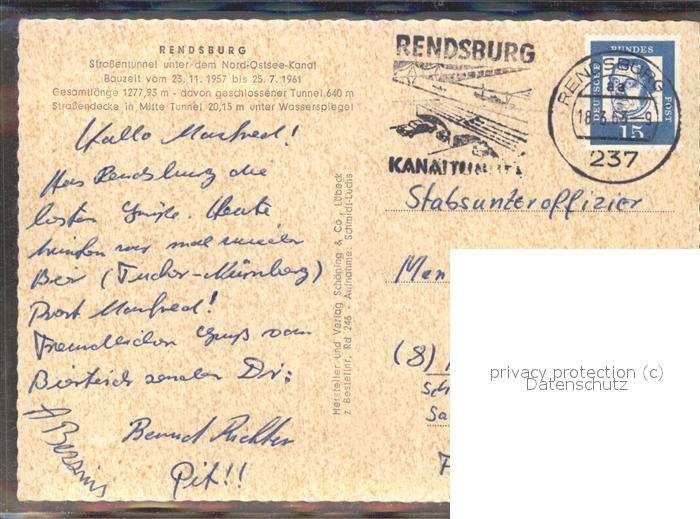 RENDSBURG
Straßentunnel unter dem Nord-Ostsee-Kanal
Bauzeit vom 23. 11. 1957 bis 25. 7. 1961
Gesamtlänge 1277,93 m - davon geschlossener Tunnel 640 m
Straßendecke in Mitte Tunnel 20,15 m unter Wasserspiegel
Hallo Manfred!
Aus Rendsburg die
besten Grüße. Heute
trinken wir mal wieder
Bier (Tucher-Nürnberg)
Prost Manfred!
Freundlichen Gruß vom
senden Dir:
Bernd Richter
Pit!!
Hersteller und Verlag Schöning & Co., Lübeck
z Bestellnr. Rd 246 - Aufnahme: Schmidt-Luchs
RENDSBURG
KANALTUNNEL
RENDSBURG
aa
237
DEUTSCHE BUNDES POST
15
Stabsunteroffizier
(8)
privacy protection (c)
Datenschutz